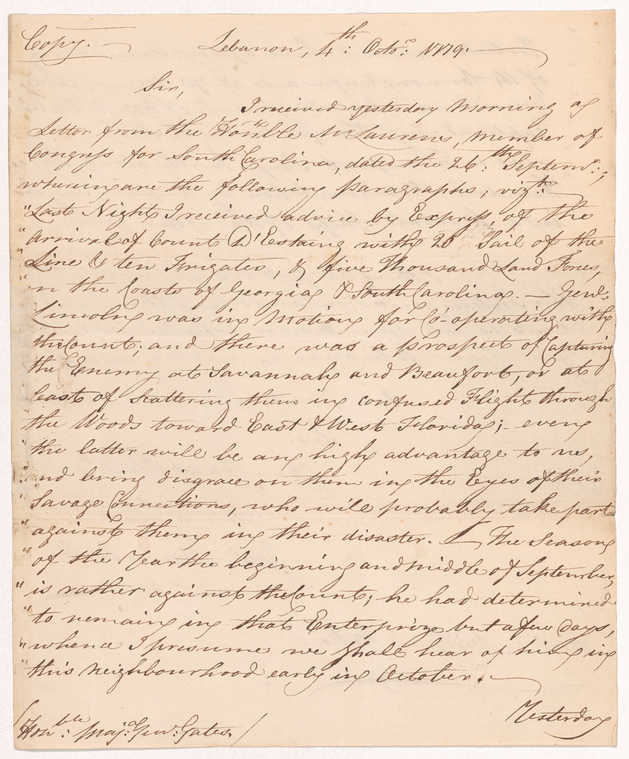 Copy.
Lebanon, 4th: Octo.r 1779.
Sir,
I received yesterday Morning a
Letter from the Honble. Mr. Laurens, Member of
Congress for South Carolina, dated the 26th: Septemr.;
wherein are the following paragraphs; vizt.
"Last Night I received advice by Express of the
"arrival of Count D'Estaing with 20 Sail of the
"Line & ten Frigates, & five Thousand Land Forces,
"on the Coasts of Georgia & South Carolina. — Genl.
"Lincoln was in Motion for Co-operating with
"the Count, and there was a prospect of Capturing
"the Enemy at Savannah and Beaufort, or at
"least of scattering them in confused Flight through
"the Woods toward East & West Florida; even
"the latter will be an high advantage to us,
"and bring disgrace on them in the Eyes of their
"Savage Connections, who will probably take part
"against them in their disaster. The Season
"of the Year the beginning and middle of September,
"is rather against the Count; he had determined
"to remain in that Enterprize but a few days,
"whence I presume we shall hear of him in
"this Neighbourhood early in October.
Yesterday
Honble: Maj: Gen: Gates.